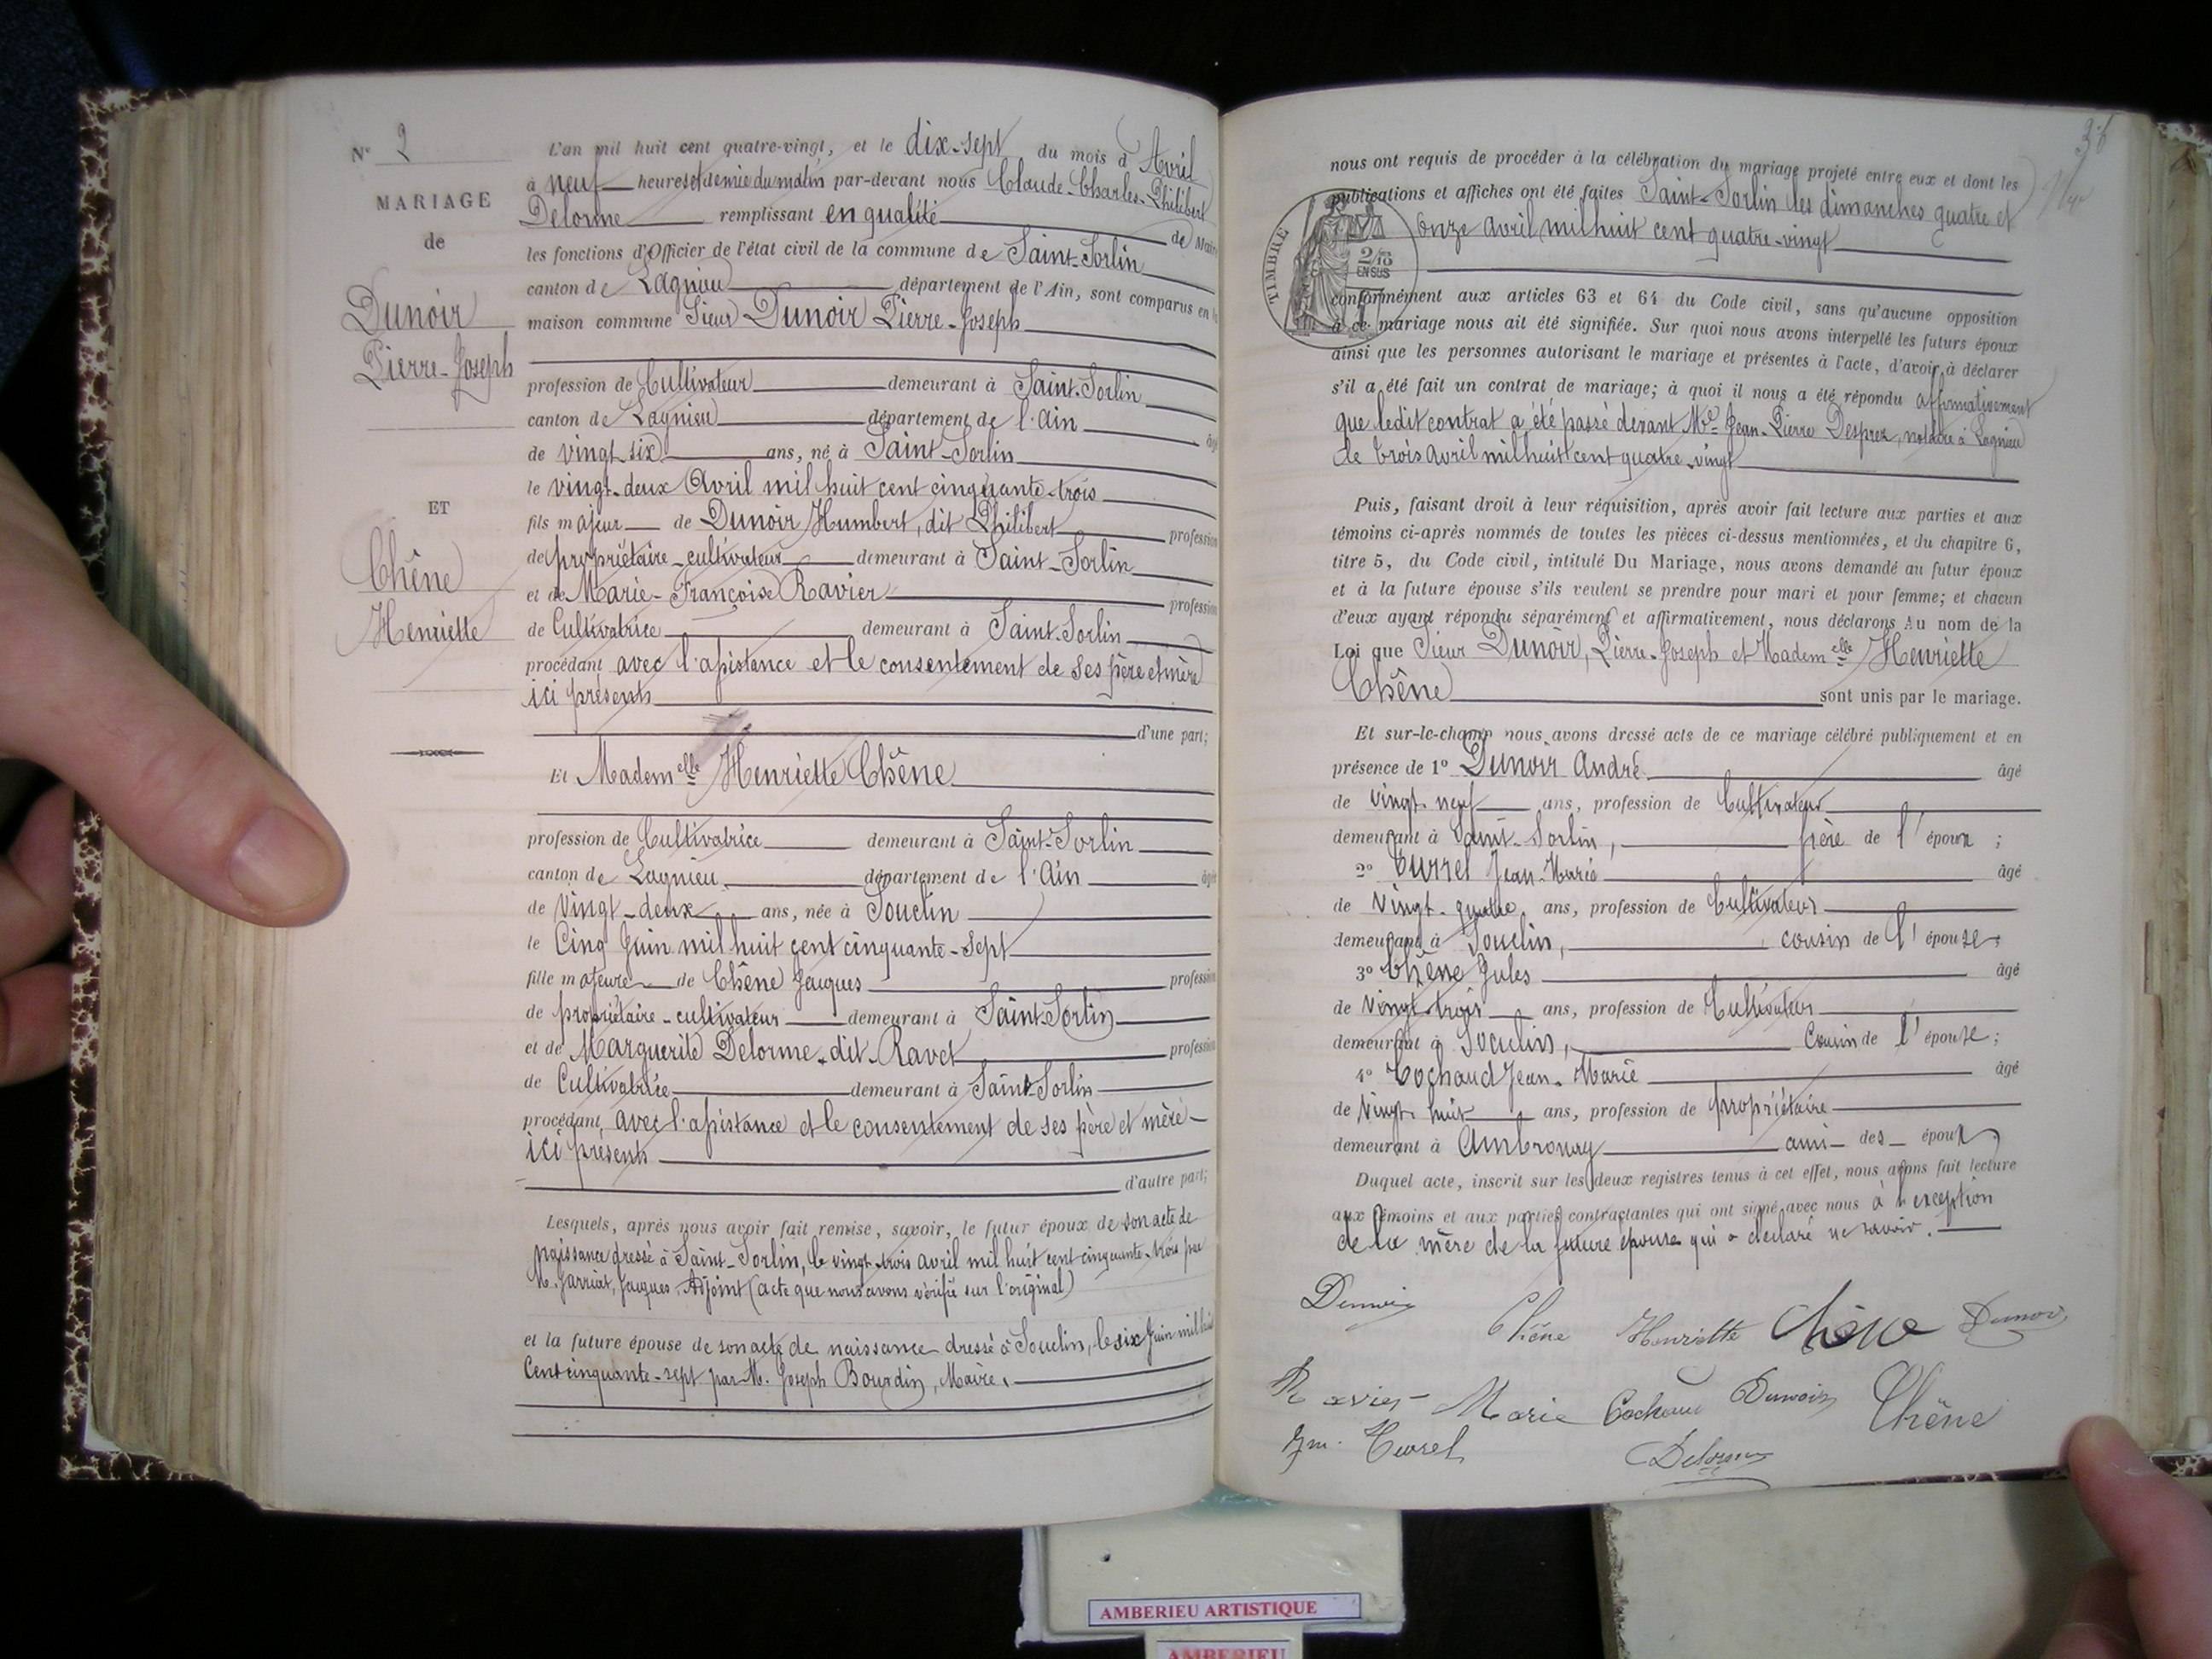 N° 2
MARIAGE
de
Dunoir
Pierre-Joseph
ET
Chêne
Henriette
L'an mil huit cent quatre-vingt, et le dix-sept du mois d'Avril
à neuf heures et demie du matin par-devant nous Claude-Charles-Philibert
Delorme remplissant en qualité de Maire
les fonctions d'Officier de l'état civil de la commune de Saint-Sorlin
canton de Lagnieu département de l'Ain, sont comparus en la
maison commune Sieur Dunoir Pierre-Joseph
profession de Cultivateur demeurant à Saint-Sorlin
canton de Lagnieu département de l'Ain âgé
de vingt-six ans, né à Saint-Sorlin
le vingt-deux Avril mil huit cent cinquante-trois
fils majeur de Dunoir Humbert, dit Philibert profession
de propriétaire-cultivateur demeurant à Saint-Sorlin
et de Marie-Françoise Ravier profession
de Cultivatrice demeurant à Saint-Sorlin
procédant avec l'assistance et le consentement de ses père et mère
ici présents
d'une part;
Et Madem elle Henriette Chêne
profession de Cultivatrice demeurant à Saint-Sorlin
canton de Lagnieu département de l'Ain âgée
de vingt-deux ans, née à Souclin
le Cinq Juin mil huit cent cinquante-sept
fille majeure de Chêne Jacques profession
de propriétaire-cultivateur demeurant à Saint-Sorlin
et de Marguerite Delorme-dit-Ravet profession
de Cultivatrice demeurant à Saint-Sorlin
procédant avec l'assistance et le consentement de ses père et mère
ici présents
d'autre part;
Lesquels, après nous avoir fait remise, savoir, le futur époux de son acte de
naissance dressé à Saint-Sorlin, le vingt-trois avril mil huit cent cinquante-trois par
M. Jarriat, Jacques, Adjoint (acte que nous avons vérifié sur l'original)
et la future épouse de son acte de naissance dressé à Souclin, le six Juin mil huit
Cent cinquante-sept par M. Joseph Bourdin, Maire.
nous ont requis de procéder à la célébration du mariage projeté entre eux et dont les
publications et affiches ont été faites Saint-Sorlin les dimanches quatre et
onze avril mil huit cent quatre-vingt
TIMBRE
2/10
EN SUS
conformément aux articles 63 et 64 du Code civil, sans qu'aucune opposition
à ce mariage nous ait été signifiée. Sur quoi nous avons interpellé les futurs époux
ainsi que les personnes autorisant le mariage et présentes à l'acte, d'avoir à déclarer
s'il a été fait un contrat de mariage; à quoi il nous a été répondu affirmativement
que ledit contrat a été passé devant Me Jean-Pierre Desprez, notaire à Lagnieu
le trois avril mil huit cent quatre-vingt
Puis, faisant droit à leur réquisition, après avoir fait lecture aux parties et aux
témoins ci-après nommés de toutes les pièces ci-dessus mentionnées, et du chapitre 6,
titre 5, du Code civil, intitulé Du Mariage, nous avons demandé au futur époux
et à la future épouse s'ils veulent se prendre pour mari et pour femme; et chacun
d'eux ayant répondu séparément et affirmativement, nous déclarons Au nom de la
Loi que Sieur Dunoir, Pierre-Joseph et Madem elle Henriette
Chêne sont unis par le mariage.
Et sur-le-champ nous avons dressé acte de ce mariage célébré publiquement et en
présence de 1° Dunoir André âgé
de vingt-neuf ans, profession de Cultivateur
demeurant à Saint-Sorlin, frère de l'époux;
2° Turrel Jean-Marie âgé
de vingt-quatre ans, profession de Cultivateur
demeurant à Souclin, cousin de l'épouse;
3° Chêne Jules âgé
de vingt-trois ans, profession de Cultivateur
demeurant à Souclin, Cousin de l'épouse;
4° Cochaud Jean-Marie âgé
de vingt huit ans, profession de propriétaire
demeurant à Ambronay ami des époux
Duquel acte, inscrit sur les deux registres tenus à cet effet, nous avons fait lecture
aux témoins et aux parties contractantes qui ont signé avec nous à l'exception
de la mère de la future épouse qui a déclaré ne savoir.
Dunoir Chêne Henriette Chêne Dunoir
Ravier Marie Cochaud Dunoir Chêne
Jm. Turrel Delorme
AMBERIEU ARTISTIQUE
AMBERIEU